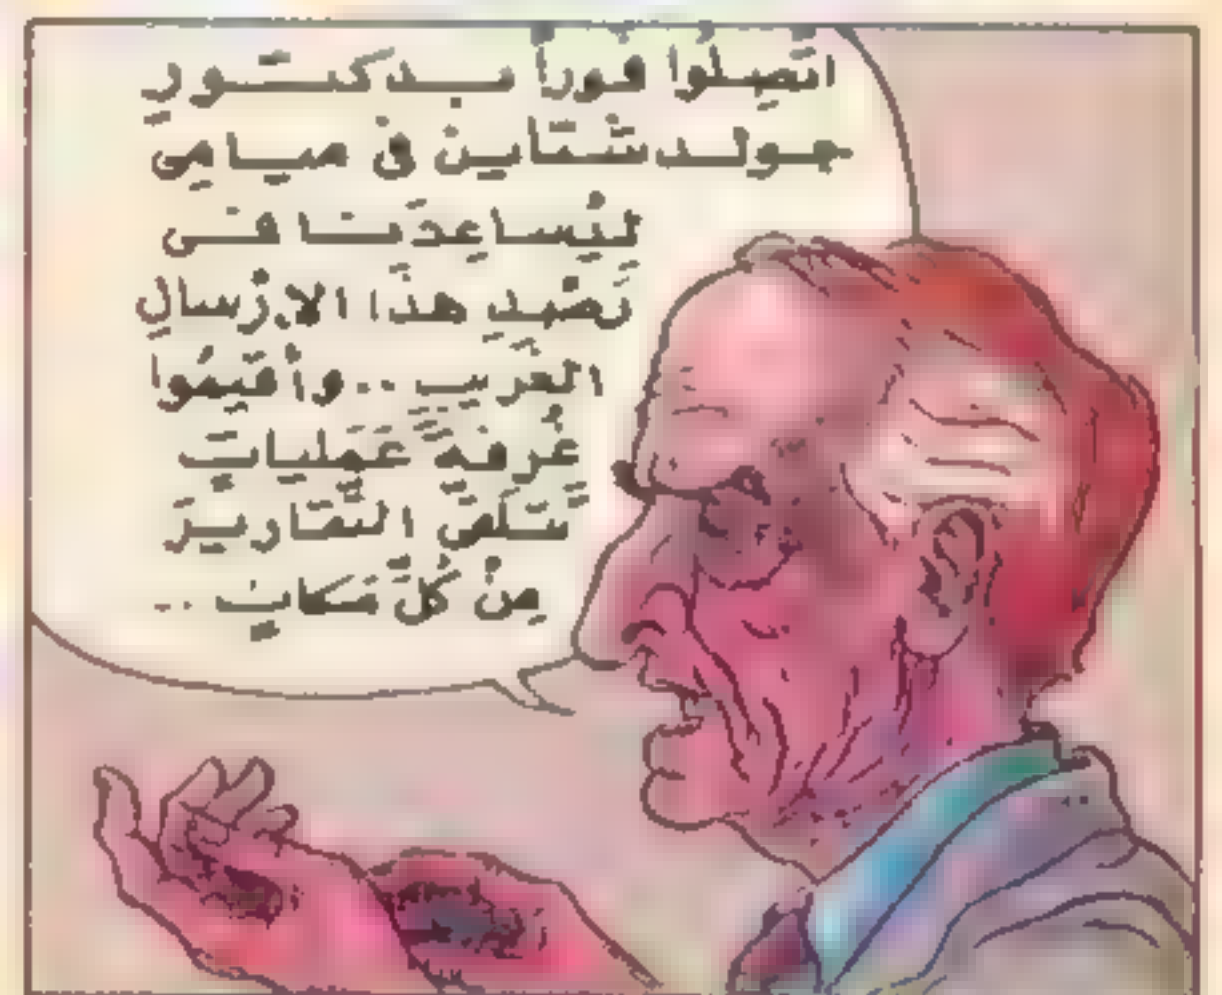 اتَّصِلُوا فوراً بدكتورِ
جولدشتاين فى ميامِى
لِيُساعِدَنا فى
رَصْدِ هذا الارْسالِ
الغَريبِ .. وأقيمُوا
غُرفةَ عَمَلياتٍ
تتلقَّى التقاريرَ
مِنْ كُلِّ مَكانٍ ..